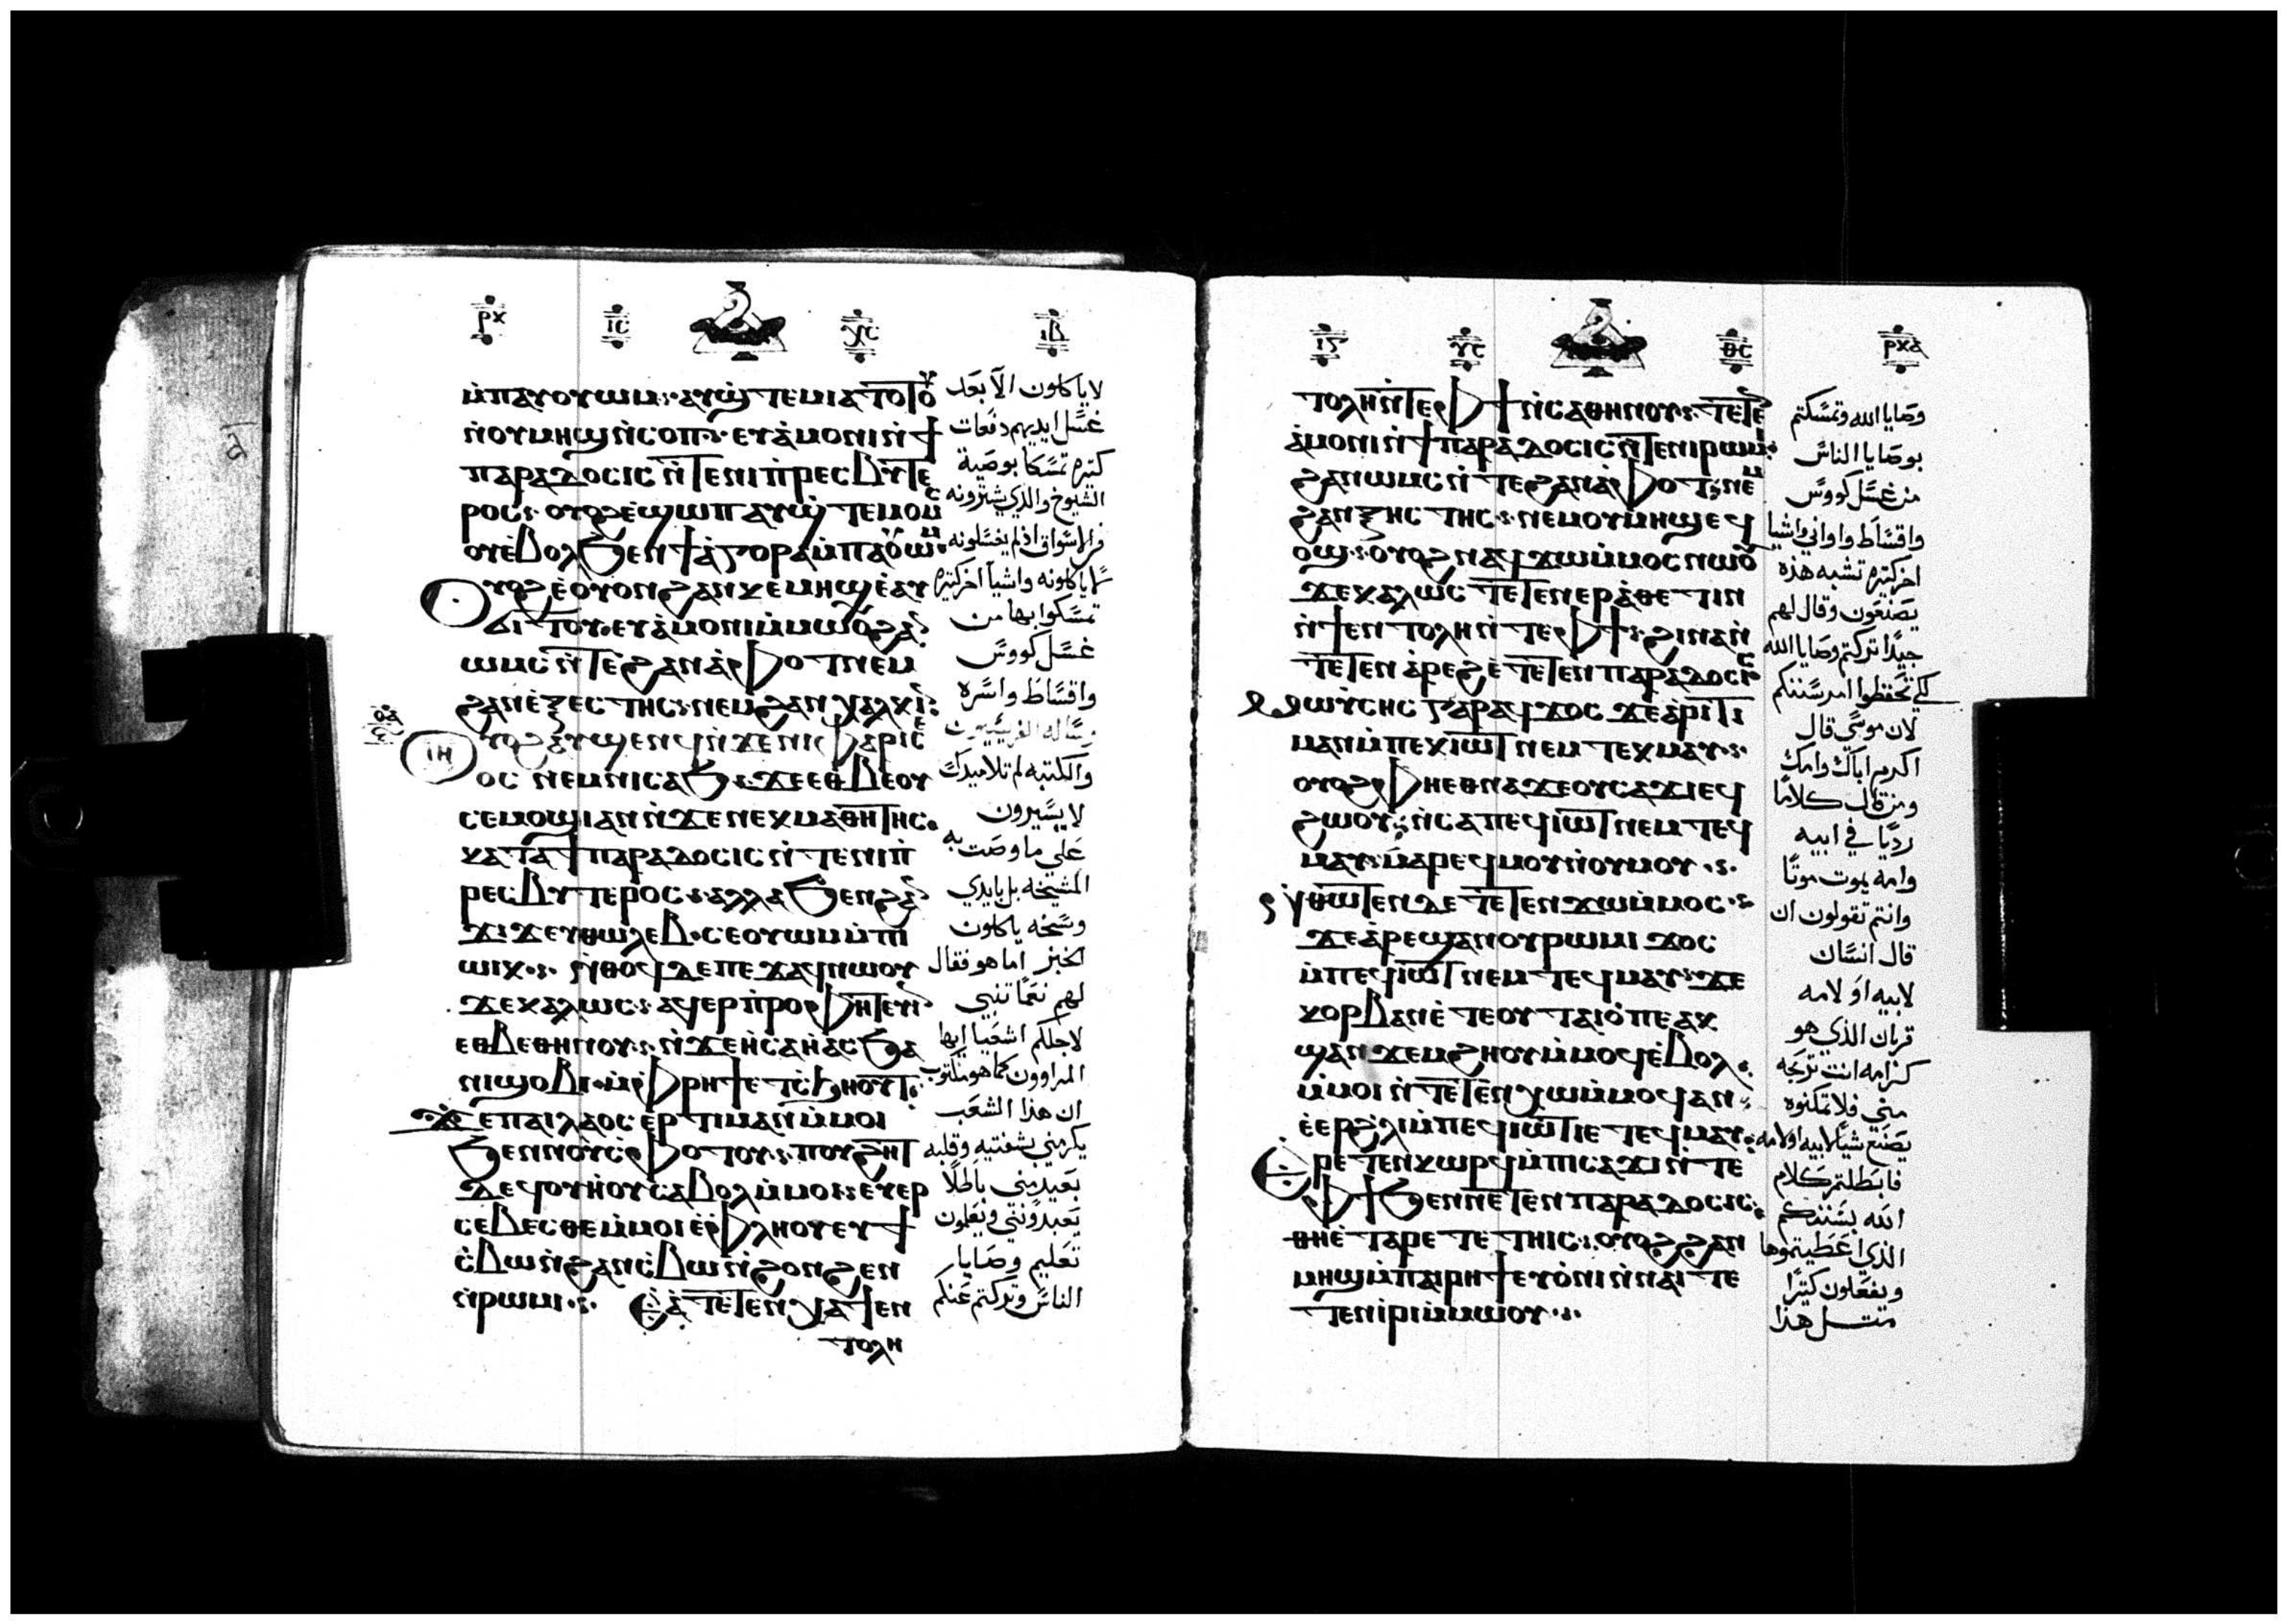 ⲣⲕ ⲓⲥ ⲭⲥ ⲓⲃ
ⲙ̀ⲡⲁⲩⲟⲩⲱⲙ: ⲁⲩϣ̀ⲧⲉⲙⲓⲁ ⲧⲟⲧⲟⲩ
ⲛ̀ⲟⲩⲙⲏϣ ⲛ̀ⲥⲟⲡ: ⲉⲩⲁ̀ⲙⲟⲛⲓ ⲛ̀ϯ
ⲡⲁⲣⲁⲇⲟⲥⲓⲥ ⲛ̀ⲧⲉⲛⲓⲡ̀ⲣⲉⲥⲃⲩⲧⲉ
ⲣⲟⲥ: ⲟⲩⲟϩ ⲉ̀ϣⲱⲡ ⲁⲩϣ̀ⲧⲉⲙⲟⲙⲥ
ⲟⲩ ⲉ̀ⲃⲟⲗϧⲉⲛ ϯⲁ̀ⲅⲟⲣⲁ ⲙ̀ⲡⲁⲩⲟⲩⲱⲙ:
ⲟⲩⲟϩ ⲉ̀ⲟⲩⲟⲛ ϩⲁⲛⲕⲉⲙⲏϣ ⲉ̀ⲁⲩ
ϭⲓⲧⲟⲩ ⲉⲩⲁ̀ⲙⲟⲛⲓ ⲙ̀ⲙⲱⲟⲩ ϩⲁⲛ
ⲱⲙⲥ ⲛ̀ⲧⲉ ϩⲁⲛⲁ̀ⲫⲟⲧ ⲛⲉⲙ
ϩⲁⲛⲉ̀ⲝⲉⲥⲧⲏⲥ: ⲛⲉⲙ ϩⲁⲛⲭⲁⲗⲕⲓⲛ:
ⲟⲩⲟϩ ⲁⲩϣⲉⲛϥ ⲛ̀ϫⲉⲛⲓⲫⲁⲣⲓⲥⲉ
ⲟⲥ ⲛⲉⲙ ⲛⲓⲥⲁϧ: ϫⲉ ⲉⲑⲃⲉⲟⲩ
ⲥⲉⲙⲟϣⲓ ⲁⲛ ⲛ̀ϫⲉ ⲛⲉⲕⲙⲁⲑⲏⲧⲏⲥ:
ⲕⲁⲧⲁ ϯⲡⲁⲣⲁⲇⲟⲥⲓⲥ ⲛ̀ⲧⲉⲛⲓⲡ̀
ⲣⲉⲥⲃⲩⲧⲉⲣⲟⲥ: ⲁⲗⲗⲁ ϧⲉⲛϩⲁⲛ
ϫⲓϫ ⲉⲩⲑⲱⲗⲉⲃ: ⲥⲉⲟⲩⲱⲙ ⲙ̀ⲡⲓ
ⲱⲓⲕ: ⲛ̀ⲑⲟϥ ⲇⲉ ⲡⲉϫⲁϥ ⲛⲱⲟⲩ
ϫⲉ ⲕⲁⲗⲱⲥ: ⲁϥⲉⲣⲡ̀ⲣⲟⲫⲏⲧⲉⲩⲓⲛ
ⲉⲑⲃⲉⲑⲏⲛⲟⲩ: ⲛ̀ϫⲉ ⲏ̀ⲥⲁⲏ̀ⲁⲥ ϧⲁ
ⲛⲓϣⲟⲃⲓ ⲙ̀ⲫⲣⲏϯ ⲉⲧⲥ̀ϧⲏⲟⲩⲧ:
ϫⲉ ⲡⲁⲓⲗⲁⲟⲥ ⲉⲣⲧⲓⲙⲁⲛ ⲙ̀ⲙⲟⲓ
ϧⲉⲛ ⲛⲟⲩⲥ̀ⲫⲟⲧⲟⲩ: ⲡⲟⲩϩⲏⲧ
ⲇⲉ ϥⲟⲩⲏ̀ⲟⲩ ⲥⲁⲃⲟⲗ ⲙ̀ⲙⲟⲓ: ⲉⲩⲉⲣ
ⲥⲉⲃⲉⲥⲑⲉ ⲙ̀ⲙⲟⲓ ⲉ̀ⲫⲗⲏⲟⲩ ⲉⲩϯ
ⲥ̀ⲃⲱ ⲛ̀ϩⲁⲛⲥ̀ⲃⲱ ⲛ̀ϩⲟⲛϩⲉⲛ
ⲛ̀ⲣⲱⲙⲓ: ⲉ̀ⲁ̀ⲧⲉⲧⲉⲛⲭⲁ ϯⲉⲛ
ⲧⲟⲗⲏ
لا ياكلون الا بعد
غسل ايديهم دفعات
كثيره تمسكا بوصية
الشيوخ والذي يشترونه
من الاسواق اذ لم يغسلونه
لا ياكلونه واشيا اخر كثيره
تمسكوا بها من
غسل كووس
واقساط واسره
وساله الفريسيون
والكتبه لم تلاميدك
لا يسيرون
على ما وصت به
المشيخه بل بايدي
وسخه ياكلون
الخبز اما هو فقال
لهم نعما تنبي
لاجلكم اشعيا ايها
المراوون كما هو مكتوب
ان هذا الشعب
يكرمني بشفتيه وقلبه
بعيد مني باطلا
يعبدونني ويعلمون
تعليم وصايا
الناس وتركتم عنكم
ⲓⲥ ⲩⲥ ⲑⲥ ⲣⲕⲁ
ⲧⲟⲗⲏ ⲛ̀ⲧⲉⲫϯ ⲛ̀ⲥⲁⲑⲏⲛⲟⲩ: ⲧⲉⲧⲉⲛ
ⲁ̀ⲙⲟⲛⲓ ⲛ̀ϯⲡⲁⲣⲁⲇⲟⲥⲓⲥ ⲛ̀ⲧⲉⲛⲓⲣⲱⲙⲓ:
ϩⲁⲛⲱⲙⲥ ⲛ̀ⲧⲉ ϩⲁⲛⲁ̀ⲫⲟⲧ: ⲛⲉⲙ
ϩⲁⲛⲝⲏⲥⲧⲏⲥ: ⲛⲉⲙ ⲟⲩⲙⲏϣ ⲉϥ
ⲟϣ: ⲟⲩⲟϩ ⲛⲁϥϫⲱ ⲙ̀ⲙⲟⲥ ⲛⲱⲟⲩ
ϫⲉ ⲕⲁⲗⲱⲥ ⲧⲉⲧⲉⲛⲉⲣⲁ̀ⲑⲉⲧⲓⲛ
ⲛ̀ϯⲉⲛⲧⲟⲗⲏ ⲛ̀ⲧⲉⲫϯ: ϩⲓⲛⲁ ⲛ̀
ⲧⲉⲧⲉⲛⲁ̀ⲣⲉϩ ⲉ̀ⲧⲉⲧⲉⲛⲡⲁⲣⲁⲇⲟⲥⲓⲥ
ⲙⲱⲩⲥⲏⲥ ⲅⲁⲣ ⲁϥϫⲟⲥ ϫⲉ ⲁ̀ⲣⲓⲧⲓ
ⲙⲁⲛ ⲙ̀ⲡⲉⲕⲓⲱⲧ ⲛⲉⲙ ⲧⲉⲕⲙⲁⲩ:
ⲟⲩⲟϩ ⲫⲏⲉⲑⲛⲁϫⲉ ⲟⲩⲥⲁϫⲓ ⲉϥ
ϩⲱⲟⲩ: ⲛ̀ⲥⲁ ⲡⲉϥⲓⲱⲧ ⲛⲉⲙ ⲧⲉϥ
ⲙⲁⲩ: ⲙⲁⲣⲉϥⲙⲟⲩ ⲛ̀ⲟⲩⲙⲟⲩ:
ⲛ̀ⲑⲱⲧⲉⲛ ⲇⲉ ⲧⲉⲧⲉⲛϫⲱ ⲙ̀ⲙⲟⲥ:
ϫⲉ ⲁ̀ⲣⲉϣⲁⲛ ⲟⲩⲣⲱⲙⲓ ϫⲟⲥ
ⲙ̀ⲡⲉϥⲓⲱⲧ ⲛⲉⲙ ⲧⲉϥⲙⲁⲩ: ϫⲉ
ⲕⲟⲣⲃⲁⲛ ⲉ̀ⲧⲉ ⲟⲩⲧⲁⲓⲟ̀ ⲡⲉ ⲁⲕ
ϣⲁⲛϫⲉⲙϩⲏⲟⲩ ⲙ̀ⲙⲟϥ ⲉ̀ⲃⲟⲗ
ⲙ̀ⲙⲟⲓ ⲛ̀ⲧⲉⲧⲉⲛⲭⲱ ⲙ̀ⲙⲟϥ ⲁⲛ:
ⲉ̀ⲉⲣϩ̀ⲗⲓ ⲙ̀ⲡⲉϥⲓⲱⲧ ⲓⲉ ⲧⲉϥⲙⲁⲩ:
ⲉ̀ⲣⲉⲧⲉⲛⲕⲱⲣϥ ⲙ̀ⲡⲓⲥⲁϫⲓ ⲛ̀ⲧⲉ
ⲫϯ ϧⲉⲛ ⲛⲉⲧⲉⲛⲡⲁⲣⲁⲇⲟⲥⲓⲥ:
ⲑⲏⲉ̀ⲧⲁⲣⲉⲧⲉⲧⲏⲓⲥ: ⲟⲩⲟϩ ϩⲁⲛ
ⲙⲏϣ ⲙ̀ⲡⲁⲓⲣⲏϯ ⲉⲩⲟ̀ⲛⲓ ⲛ̀ⲛⲁⲓ ⲧⲉ
ⲧⲉⲛⲓ̀ⲣⲓ ⲙ̀ⲙⲱⲟⲩ:
وصايا الله وتمسكتم
بوصايا الناس
من غسل كووس
واقساط واواني واشيا
اخر كثيره تشبه هذه
يصنعون وقال لهم
جيدا تركتم وصايا الله
لكي تحفظوا امر سننكم
لان موسي قال
اكرم اباك وامك
ومن قال كلاما
رديا في ابيه
وامه يموت موتا
وانتم تقولون ان
قال انسان
لابيه او لامه
قربان الذي هو
كرامه انت تربحه
مني فلا تمكنوه
يصنع شيا لابيه او لامه
فابطلتم كلام
الله بسننكم
الذي اعطيتموها
وتفعلون كثيرا
مثل هذا